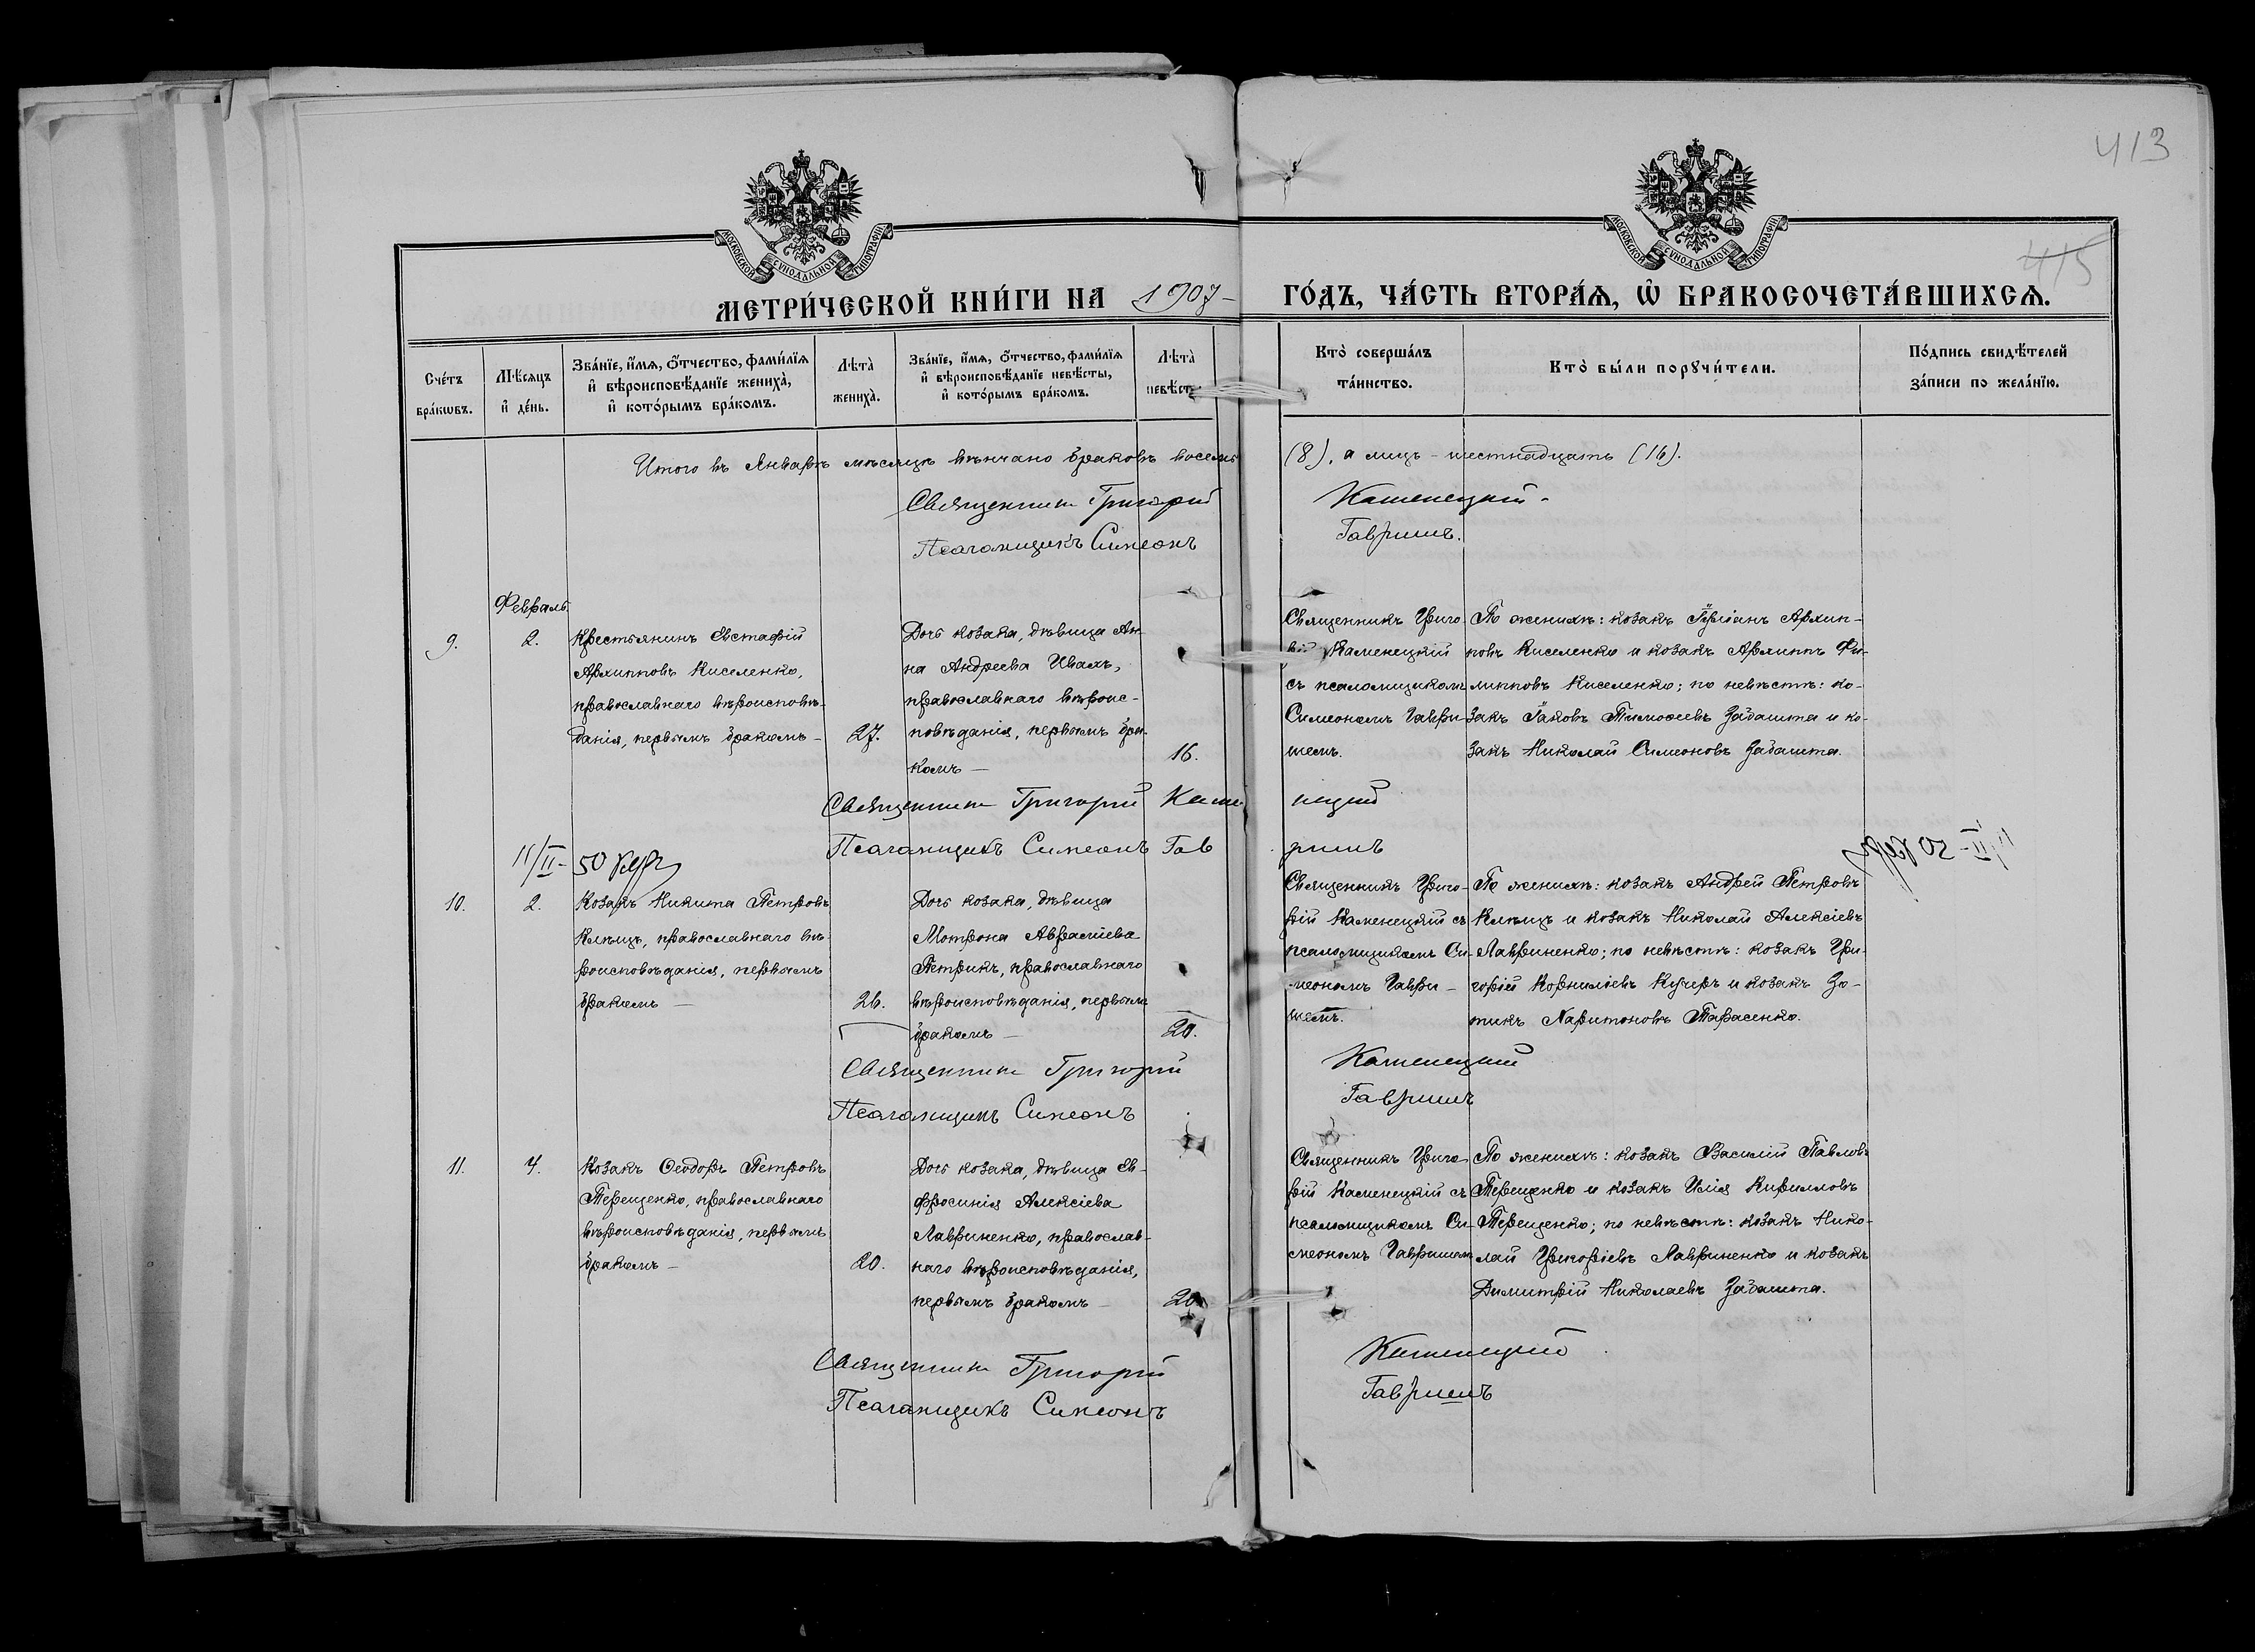 413
415
МОСКОВСКОЙ СѴНОДАЛЬНОЙ ТИПОГРАФІИ
МОСКОВСКОЙ СѴНОДАЛЬНОЙ ТИПОГРАФІИ
МЕТРИ́ЧЕСКОЙ КНИ́ГИ НА 1907 – ГО́ДЪ, ЧА́СТЬ ВТОРА́Ѧ, Ѡ҆ БРАКОСОЧЕТА́ВШИХСѦ.
Сче́тъ бра́кѡвъ.
Мѣ́сяцъ и҆ де́нь.
Зва́нїе, и҆́мѧ, ѻ҆́тчество, фами́лїѧ и҆ вѣроисповѣ́данїе жениха̀, и҆ кото́рымъ бра́комъ.
Лѣта̀ жениха̀.
Зва́нїе, и҆́мѧ, ѻ҆́тчество, фами́лїѧ и҆ вѣроисповѣ́данїе невѣ́сты, и҆ кото́рымъ бра́комъ.
Лѣта̀ невѣ́ст
Кто̀ соверша́лъ та́инство.
Кто̀ бы́ли порꙋчи́тели.
По́дпись свидѣ́телей за́писи по жела́нїю.
Итого въ Январѣ мѣсяцѣ вѣнчано браковъ восемь (8), а лицъ – шестнадцать (16).
Священникъ Григорій Каменецкій
Псаломщикъ Симеонъ Гавришъ.
Февраль.
9.
2.
Крестьянинъ Евстафій
Архипповъ Киселенко,
православнаго вѣроисповѣ-
данія, первымъ бракомъ –
27.
Дочь козака, дѣвица Ан-
на Андреева Ивахъ,
православнаго вѣроис-
повѣданія, первымъ бра-
комъ –
16.
Священникъ Григо-
рій Каменецкій
съ псаломщикомъ
Симеономъ Гаври-
шемъ.
По женихѣ: козакъ Архип-
повъ Киселенко и козакъ Архиппъ Фи-
липповъ Киселенко; по невѣстѣ: ко-
закъ Іаковъ Тимоѳеевъ Забашта и ко-
закъ Николай Симеоновъ Забашта.
Священникъ Григорій Каменецкій
Псаломщикъ Симеонъ Гавришъ
11/II – 50
11/II – 50
10.
2.
Козакъ Никита Петровъ
Клѣцъ, православнаго вѣ-
роисповѣданія, первымъ
бракомъ –
26.
Дочь козака, дѣвица
Мотрона Авраміева
Петрикъ, православнаго
вѣроисповѣданія, первымъ
бракомъ –
20.
Священникъ Григо-
рій Каменецкій съ
псаломщикомъ Си-
меономъ Гаври-
шемъ.
По женихѣ: козакъ Андрей Петровъ
Клѣцъ и козакъ Николай Алексіевъ
Лавриненко; по невѣстѣ: козакъ Гри-
горій Корниліевъ Кучеръ и козакъ Зо-
тикъ Харитоновъ Тарасенко.
Священникъ Григорій Каменецкій
Псаломщикъ Симеонъ Гавришъ
11.
4.
Козакъ Ѳеодоръ Петровъ
Терещенко, православнаго
вѣроисповѣданія, первымъ
бракомъ –
20.
Дочь козака, дѣвица Ев-
фросинія Алексіева
Лавриненко, православ-
наго вѣроисповѣданія,
первымъ бракомъ –
20
Священникъ Григо-
рій Каменецкій съ
псаломщикомъ Си-
меономъ Гавришемъ
По женихѣ: козакъ Василій Павловъ
Терещенко и козакъ Илія Кирилловъ
Терещенко; по невѣстѣ: козакъ Нико-
лай Григоріевъ Лавриненко и козакъ
Димитрій Николаевъ Забашта.
Священникъ Григорій Каменецкій
Псаломщикъ Симеонъ Гавришъ